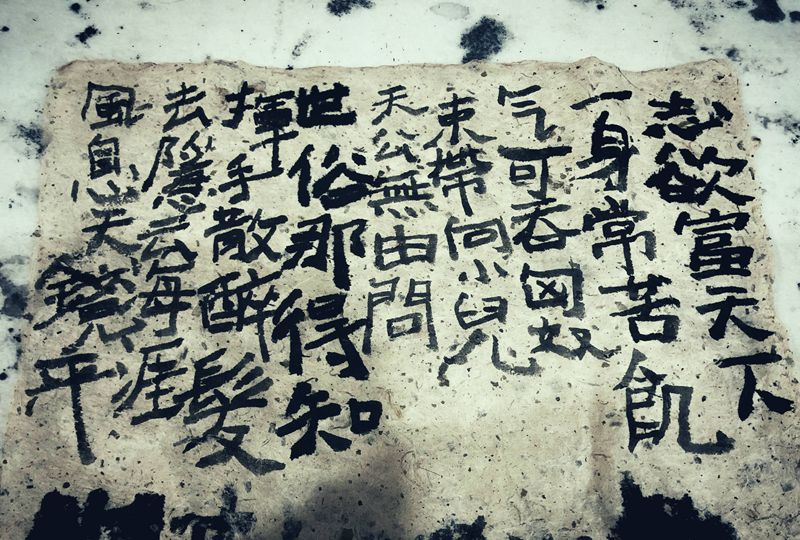 志欲富天下
一身常苦飢
气可吞匈奴
束帶向小兒
天公無由問
世俗那得知
揮手散醉髮
去隱云海涯
風息天鏡平